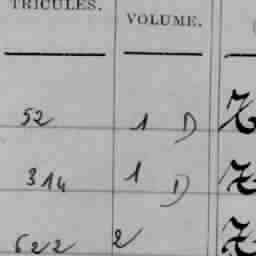 TRICULES. VOLUME.
52 1 D
314 1 D
622 2